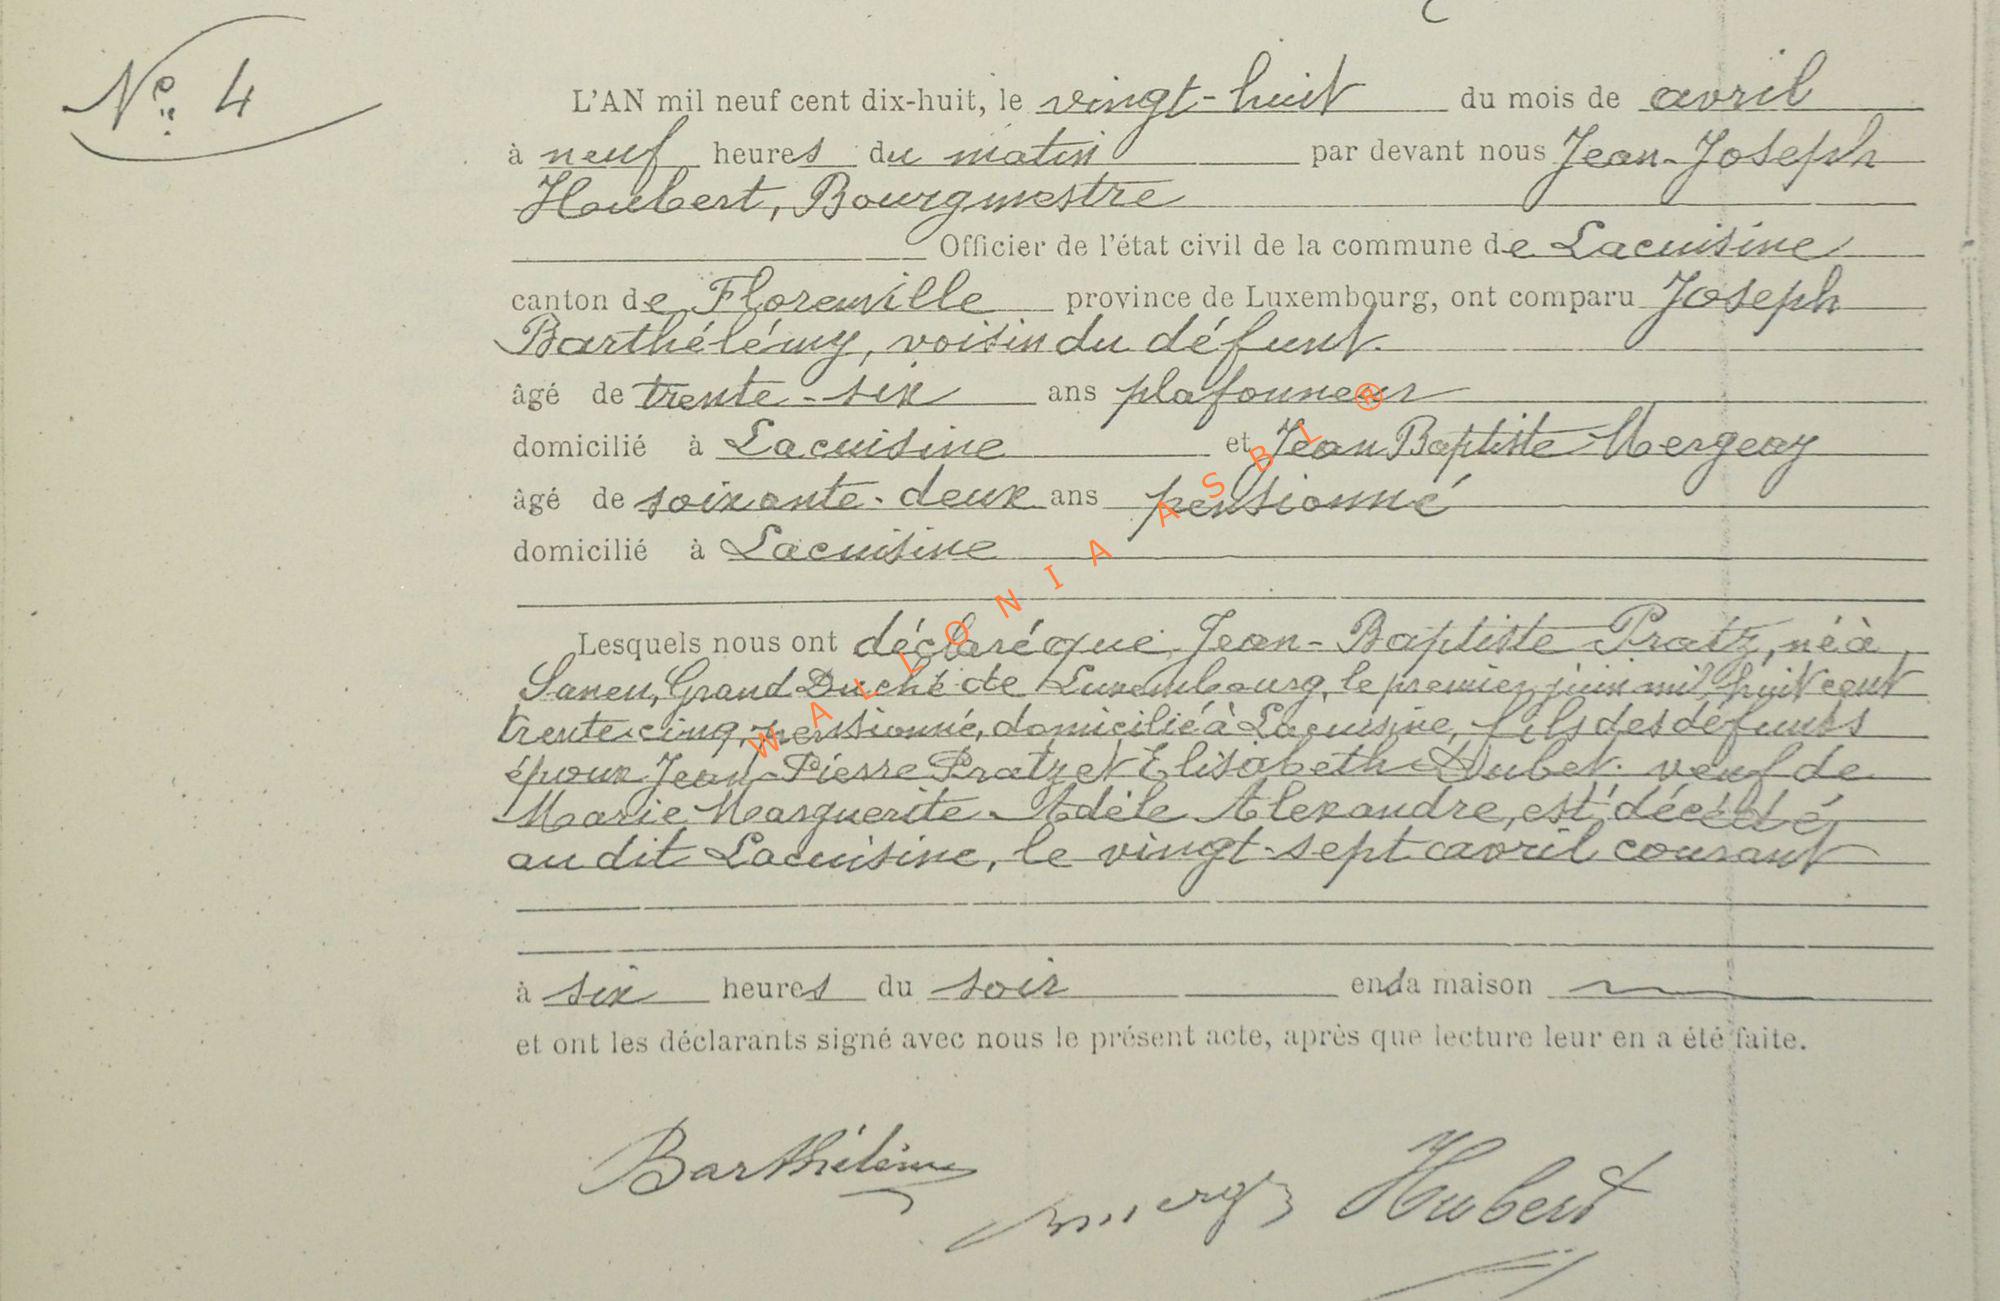 N° 4
L'AN mil neuf cent dix-huit, le vingt-huit du mois de avril
à neuf heures du matin par devant nous Jean-Joseph
Hubert, Bourgmestre
Officier de l'état civil de la commune de Lacuisine
canton de Florenville province de Luxembourg, ont comparu Joseph
Barthélémy, voisin du défunt.
âgé de trente-six ans plafonneur
domicilié à Lacuisine et Jean Baptiste Mergeay
âgé de soixante-deux ans pensionné
domicilié à Lacuisine
Lesquels nous ont déclaré que Jean-Baptiste Pratz, né à
Saneu, Grand Duché de Luxembourg, le premier juin mil huit cent
trente-cinq, pensionné, domicilié à Lacuisine, fils des défunts
époux Jean-Pierre Pratz et Elisabeth veuf de
Marie Marguerite-Adèle Alexandre, est décédé
au dit Lacuisine, le vingt-sept avril courant
à six heures du soir en sa maison
et ont les déclarants signé avec nous le présent acte, après que lecture leur en a été faite.
Barthélémy
Hubert
WALLONIA ASBL ®